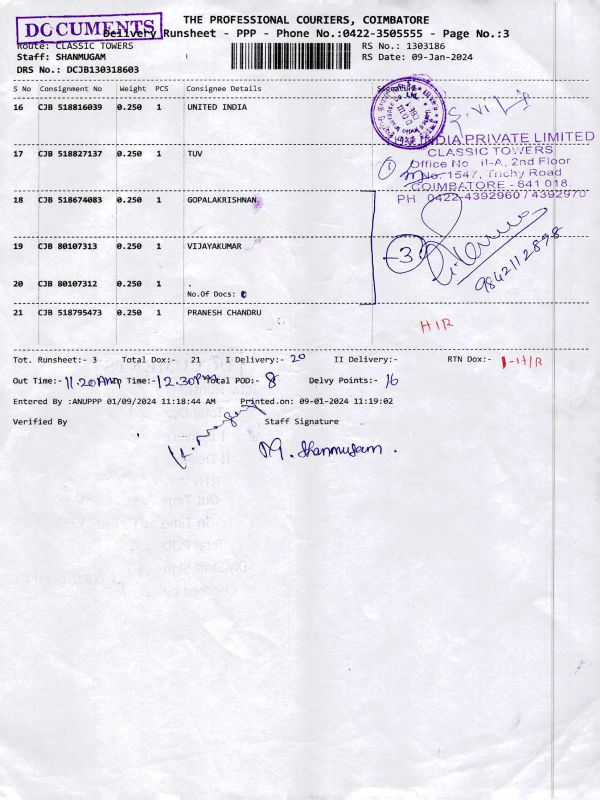 THE PROFESSIONAL COURIERS, COIMBATORE
DOCUMENTS
Delivery Runsheet - PPP - Phone No.:0422-3505555 - Page No.:3
Route: CLASSIC TOWERS RS No.: 1303186
Staff: SHANMUGAM RS Date: 09-Jan-2024
DRS No.: DCJB130318603
S No Consignment No Weight PCS Consignee Details Signature
16 CJB 518816039 0.250 1 UNITED INDIA
INDIA PRIVATE LIMITED
CLASSIC TOWERS
17 CJB 518827137 0.250 1 TUV
Office No II-A, 2nd Floor
No. 1547, Trichy Road
COIMBATORE - 641 018.
PH 0422-4392960 / 4392970
18 CJB 518674083 0.250 1 GOPALAKRISHNAN
19 CJB 80107313 0.250 1 VIJAYAKUMAR
-3
9842112898
20 CJB 80107312 0.250 1 .
No.Of Docs: 0
21 CJB 518795473 0.250 1 PRANESH CHANDRU
HIR
Tot. Runsheet:- 3 Total Dox:- 21 I Delivery:- 20 II Delivery:- RTN Dox:- 1-H/R
Out Time:- 11.20AM Time:- 12.30PM Total POD:- 8 Delvy Points:- 16
Entered By :ANUPPP 01/09/2024 11:18:44 AM Printed.on: 09-01-2024 11:19:02
Verified By Staff Signature
M. Shanmugam.